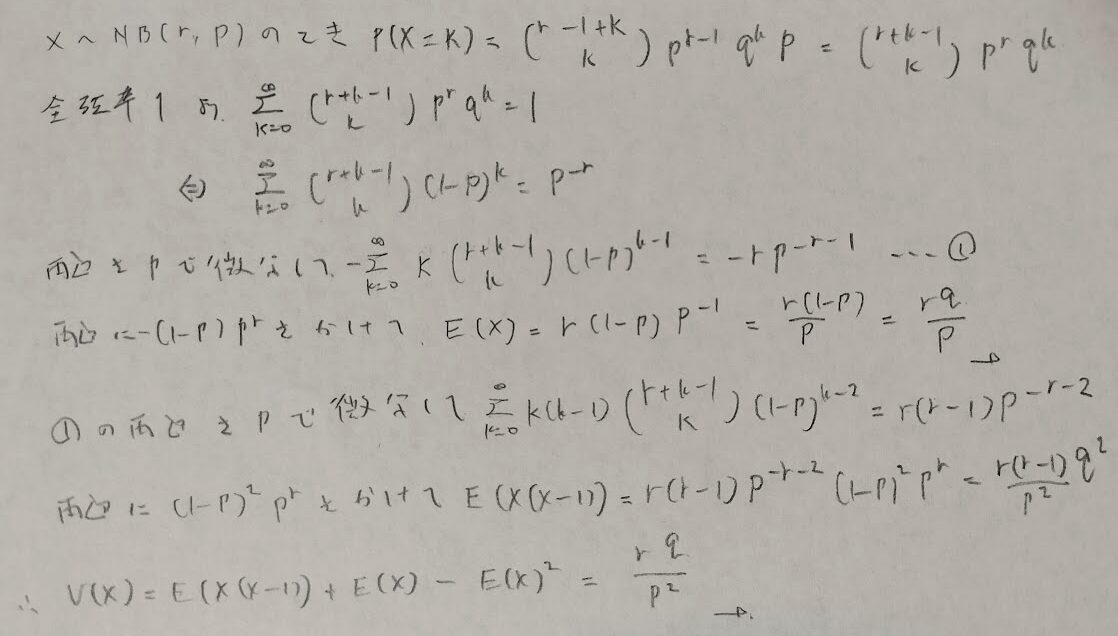 X ~ NB(r, p) のとき P(X=k) = (r-1+k k) p^{r-1} q^k p = (r+k-1 k) p^r q^k
全確率1 より. Σ_{k=0}^∞ (r+k-1 k) p^r q^k = 1
⇔ Σ_{k=0}^∞ (r+k-1 k) (1-p)^k = p^{-r}
両辺を p で微分して, -Σ_{k=0}^∞ k (r+k-1 k) (1-p)^{k-1} = -r p^{-r-1} ... ①
両辺に -(1-p) p^r をかけて, E(X) = r(1-p) p^{-1} = r(1-p)/p = rq/p →
①の両辺を p で微分して Σ_{k=0}^∞ k(k-1) (r+k-1 k) (1-p)^{k-2} = r(r-1) p^{-r-2}
両辺に (1-p)^2 p^r をかけて E(X(X-1)) = r(r-1) p^{-r-2} (1-p)^2 p^r = r(r-1)/p^2 q^2
∴ V(X) = E(X(X-1)) + E(X) - E(X)^2 = rq/p^2 →